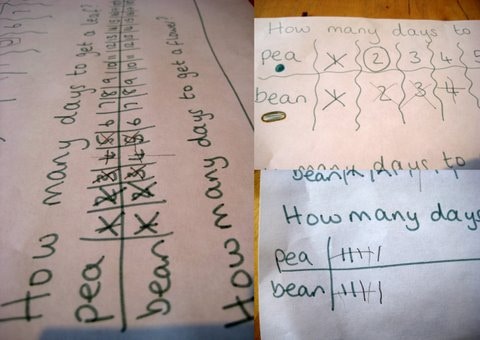 How many days to get a leaf?
pea 1 2 3 4 5 6 7 8 9 10 11 12 13 14 15 16
bean 1 2 3 4 5 6 7 8 9 10 11 12 13 14 15 16
How many days to get a flower?
How many days to
pea 1 2 3 4 5
bean 1 2 3 4
bean days to
How many days
pea
bean